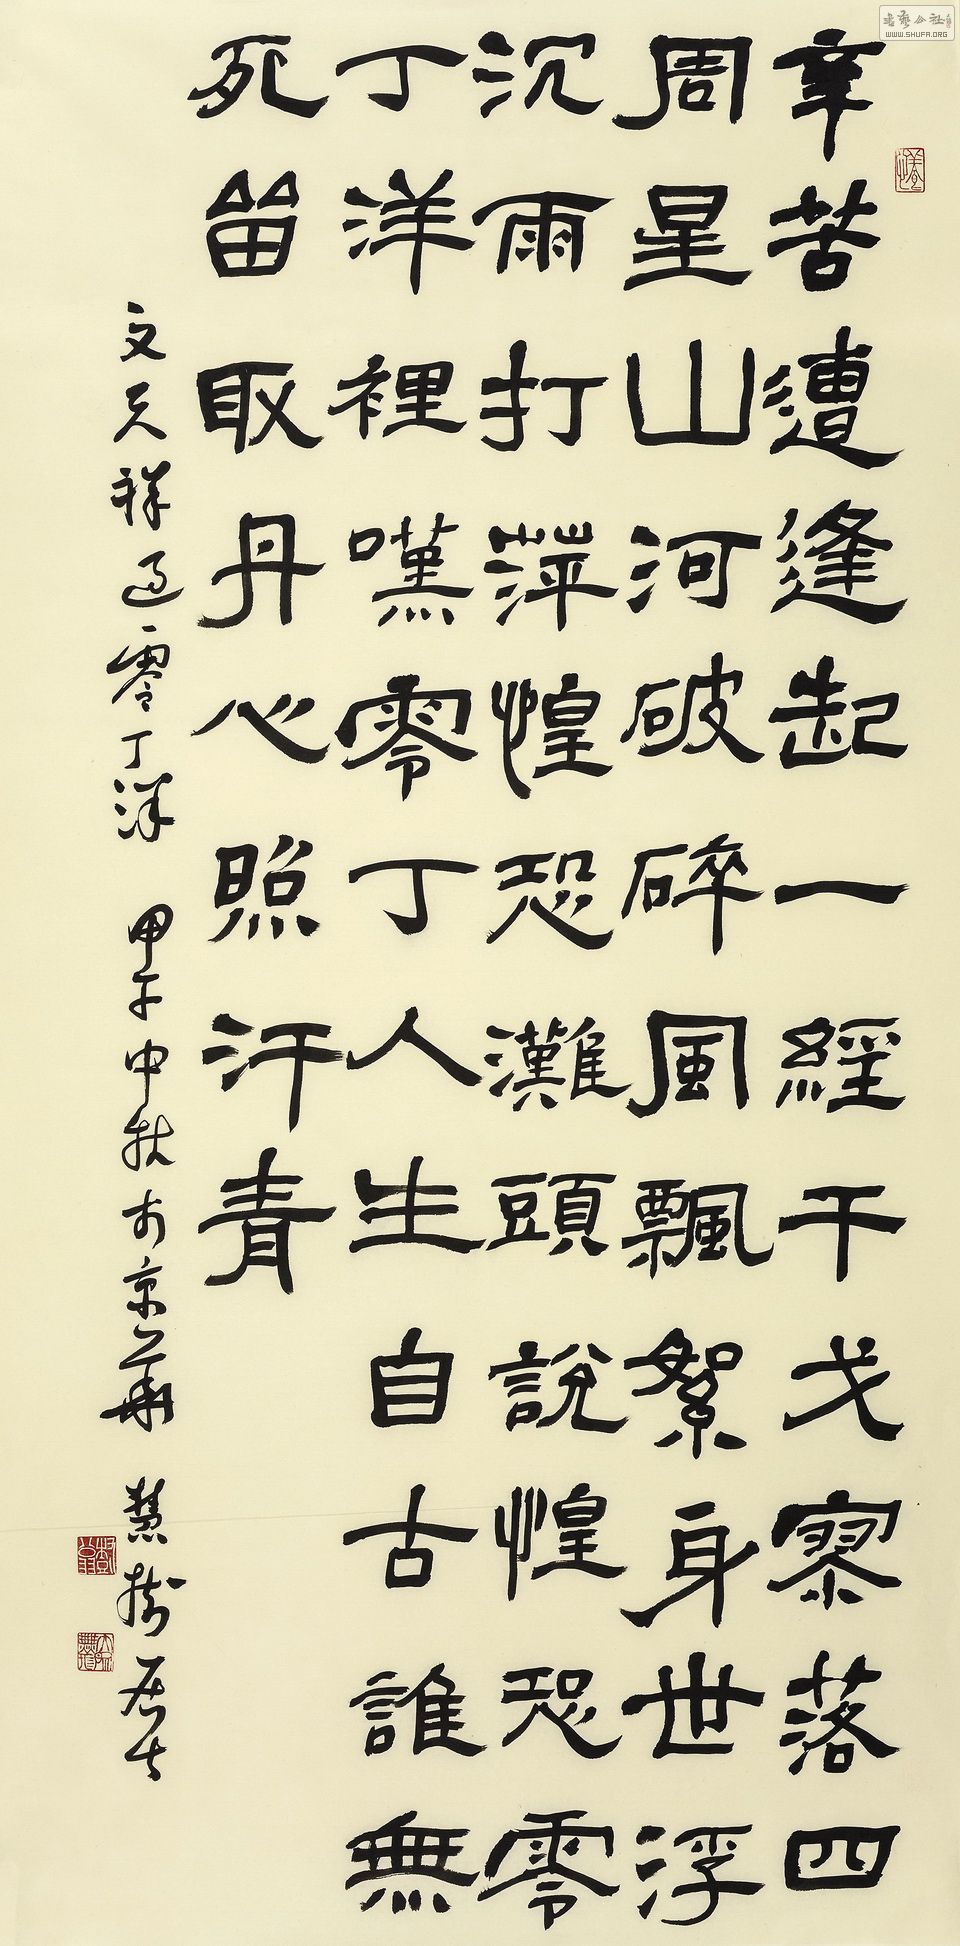 辛苦遭逢起一經干戈寥落四
周星山河破碎風飄絮身世浮
沉雨打萍惶恐灘頭說惶恐零
丁洋裡嘆零丁人生自古誰無
死留取丹心照汗青
文天祥過零丁洋 甲午中秋於京華 慧樹居士
書藝公社
WWW.SHUFA.ORG